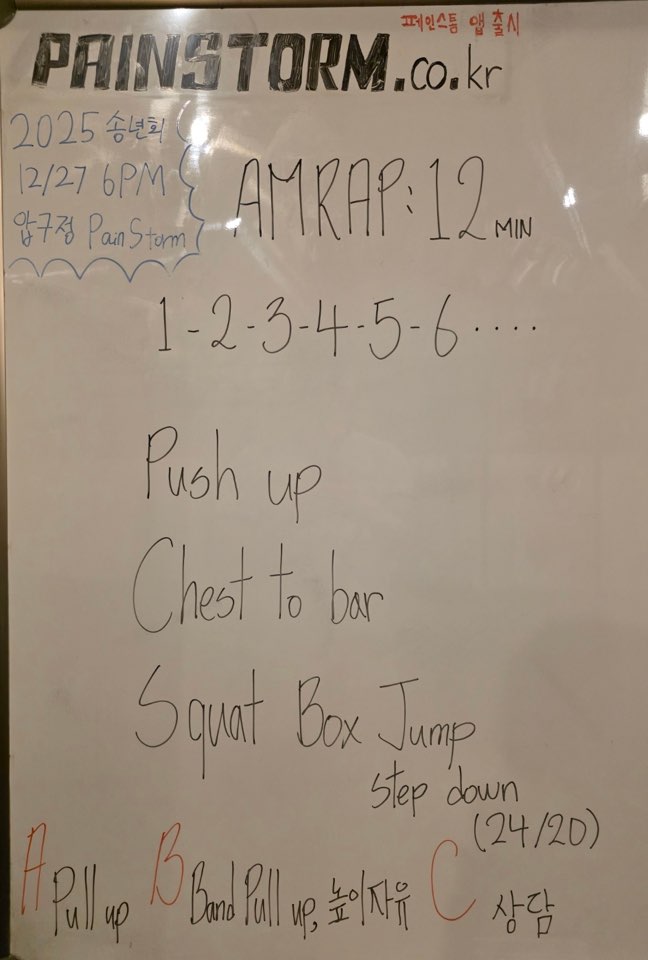 페인스톰 앱 출시
PAINSTORM.co.kr
2025 송년회
12/27 6PM
압구정 PainStorm
AMRAP: 12 MIN
1-2-3-4-5-6....
Push up
Chest to bar
Squat Box Jump
step down
(24/20)
A Pull up B Band Pull up, 높이자유 C 상담